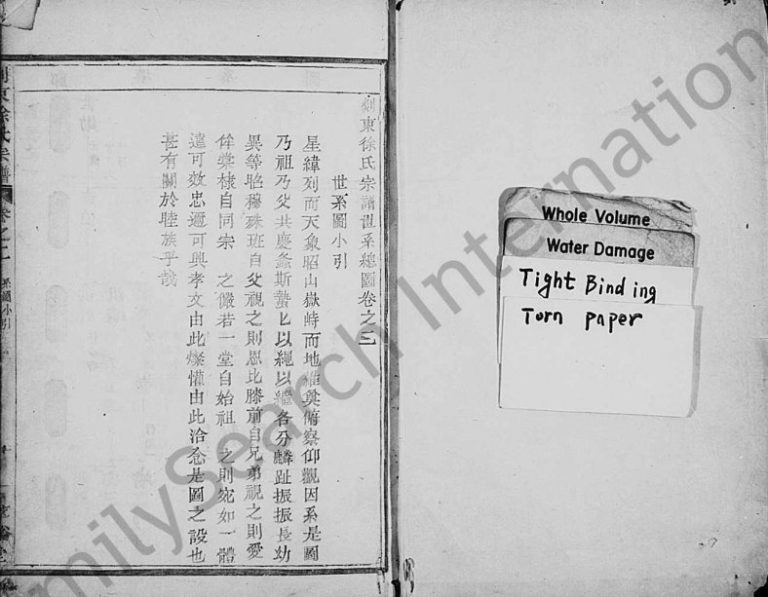 剡東徐氏宗譜世系總圖卷之二
世系圖小引
星緯列而天象昭山嶽峙而地維奠俯察仰觀因系是圖
乃祖乃父共慶螽斯蟄匕以繩以繼各分麟趾振振長幼
異等昭穆殊班自父視之則恩比膝前自兄弟視之則愛
侔棠棣自同宗 之儼若一堂自始祖 之則宛如一體
遠可效忠邇可興孝文由此燦懽由此洽忩是圖之設也
甚有關於睦族乎哉
剡東徐氏宗譜
卷之二
系圖小引
Whole Volume
Water Damage
Tight Binding
Torn paper
FamilySearch International